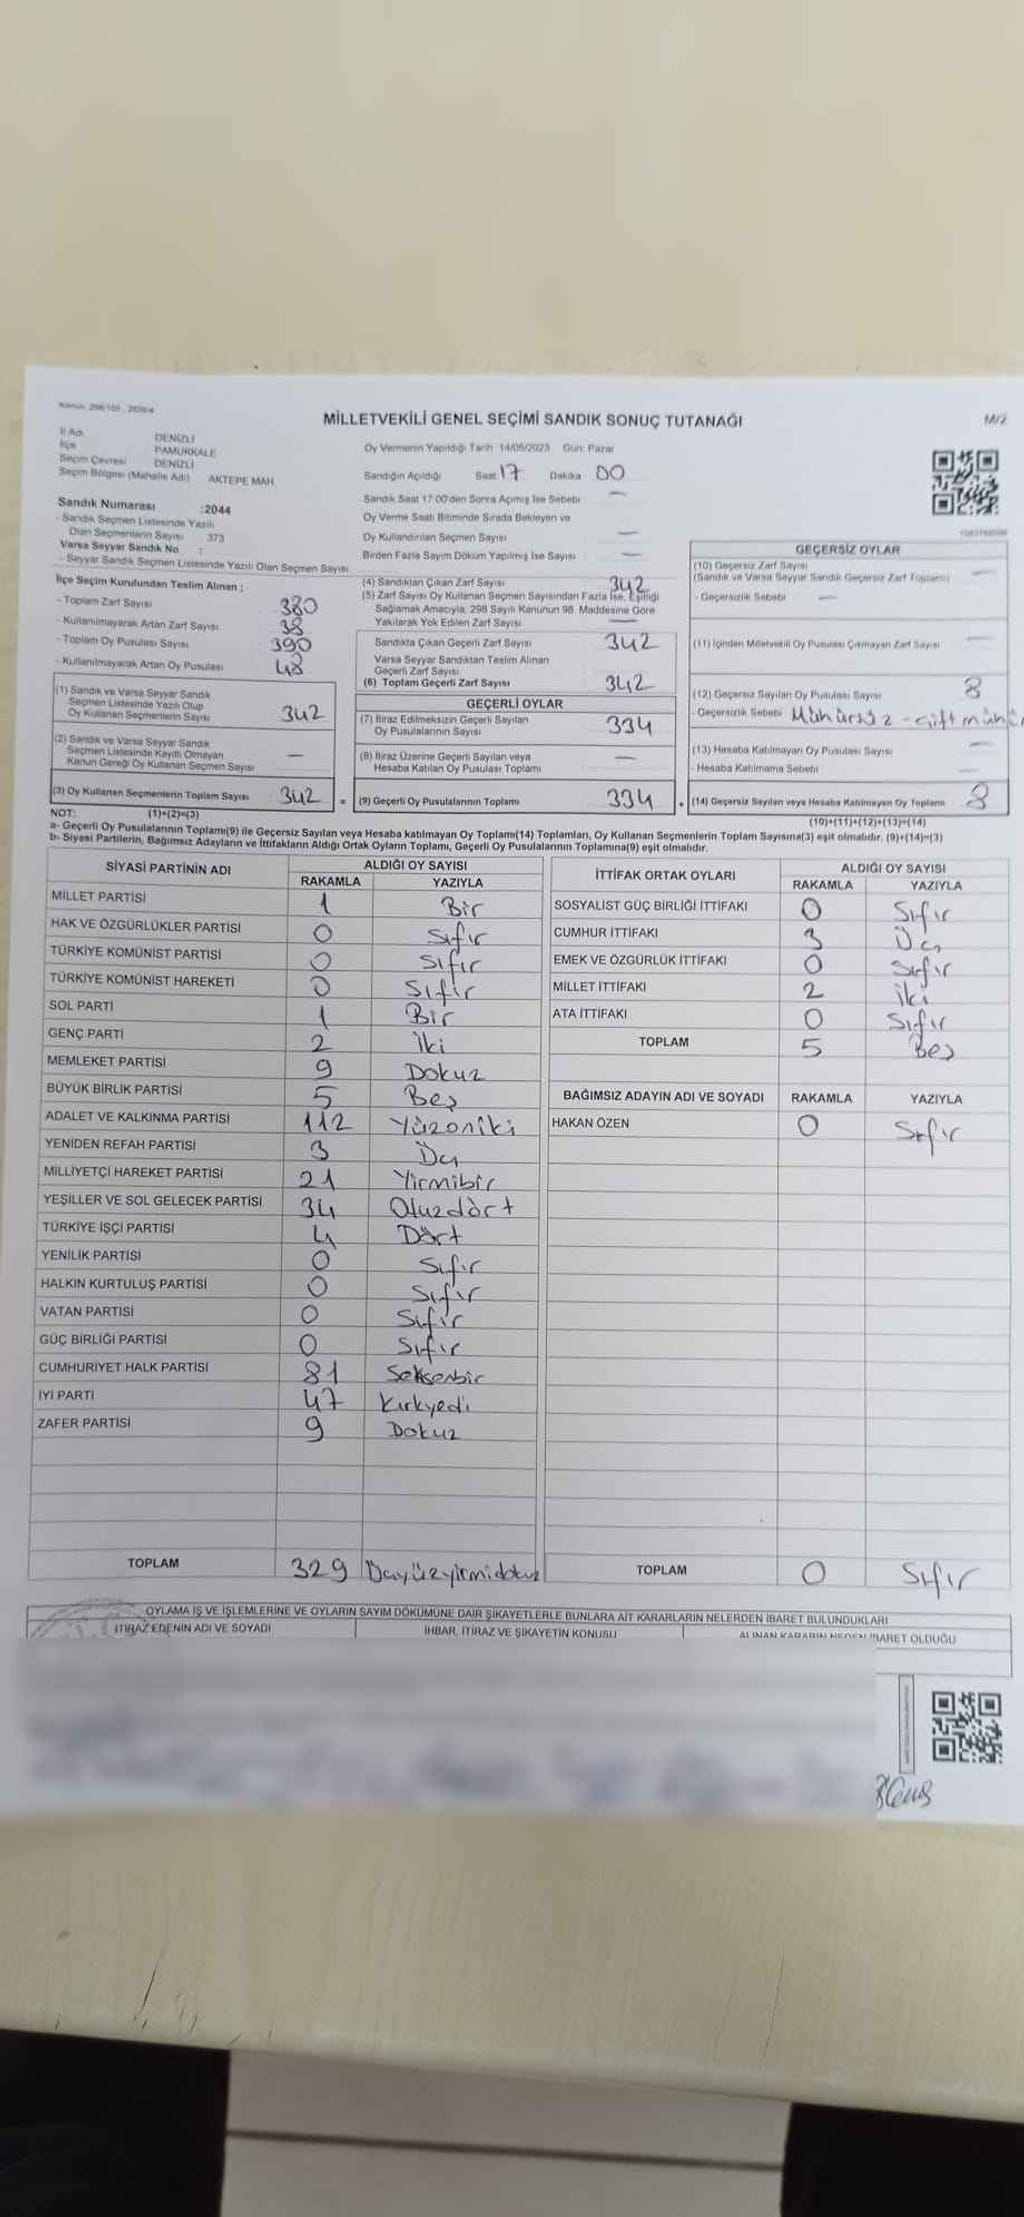 Kanun: 298/105 , 2839/4
MİLLETVEKİLİ GENEL SEÇİMİ SANDIK SONUÇ TUTANAĞI
M/2
İl Adı DENİZLİ
İlçe PAMUKKALE
Seçim Çevresi DENİZLİ
Seçim Bölgesi (Mahalle Adı) AKTEPE MAH.
Oy Vermenin Yapıldığı Tarih 14/05/2023 Gün: Pazar
Sandığın Açıldığı Saat: 17 Dakika 00
Sandık Saat 17:00'den Sonra Açımış İse Sebebi —
Oy Verme Saati Bitiminde Sırada Bekleyen ve
Oy Kullandırılan Seçmen Sayısı —
Birden Fazla Sayım Döküm Yapılmış İse Sayısı —
Sandık Numarası :2044
- Sandık Seçmen Listesinde Yazılı
Olan Seçmenlerin Sayısı 373
Varsa Seyyar Sandık No :
- Seyyar Sandık Seçmen Listesinde Yazılı Olan Seçmen Sayısı
İlçe Seçim Kurulundan Teslim Alınan :
- Toplam Zarf Sayısı 380
- Kullanılmayarak Artan Zarf Sayısı 38
- Toplam Oy Pusulası Sayısı 390
- Kullanılmayarak Artan Oy Pusulası 48
(1) Sandık ve Varsa Seyyar Sandık
Seçmen Listesinde Yazılı Olup
Oy Kullanan Seçmenlerin Sayısı 342
(2) Sandık ve Varsa Seyyar Sandık
Seçmen Listesinde Kayıtlı Olmayan
Kanun Gereği Oy Kullanan Seçmen Sayısı —
(3) Oy Kullanan Seçmenlerin Toplam Sayısı 342 =
(4) Sandıktan Çıkan Zarf Sayısı 342
(5) Zarf Sayısı Oy Kullanan Seçmen Sayısından Fazla İse, Eşitliği
Sağlamak Amacıyla, 298 Sayılı Kanunun 98. Maddesine Göre
Yakılarak Yok Edilen Zarf Sayısı —
Sandıkta Çıkan Geçerli Zarf Sayısı 342
Varsa Seyyar Sandıktan Teslim Alınan
Geçerli Zarf Sayısı
(6) Toplam Geçerli Zarf Sayısı 342
GEÇERLİ OYLAR
(7) İtiraz Edilmeksizin Geçerli Sayılan
Oy Pusulalarının Sayısı 334
(8) İtiraz Üzerine Geçerli Sayılan veya
Hesaba Katılan Oy Pusulası Toplamı —
(9) Geçerli Oy Pusulalarının Toplamı 334 +
GEÇERSİZ OYLAR
(10) Geçersiz Zarf Sayısı
(Sandık ve Varsa Seyyar Sandık Geçersiz Zarf Toplamı) —
- Geçersizlik Sebebi —
(11) İçinden Milletvekili Oy Pusulası Çıkmayan Zarf Sayısı —
(12) Geçersiz Sayılan Oy Pusulası Sayısı 8
- Geçersizlik Sebebi Mühürsüz - çift mühür
(13) Hesaba Katılmayan Oy Pusulası Sayısı —
- Hesaba Katılmama Sebebi —
(14) Geçersiz Sayılan veya Hesaba Katılmayan Oy Toplamı 8
NOT: (1)+(2)=(3) (10)+(11)+(12)+(13)=(14)
a- Geçerli Oy Pusulalarının Toplamı(9) ile Geçersiz Sayılan veya Hesaba katılmayan Oy Toplamı(14) Toplamları, Oy Kullanan Seçmenlerin Toplam Sayısına(3) eşit olmalıdır. (9)+(14)=(3)
b- Siyasi Partilerin, Bağımsız Adayların ve İttifakların Aldığı Ortak Oyların Toplamı, Geçerli Oy Pusulalarının Toplamına(9) eşit olmalıdır.
SİYASİ PARTİNİN ADI ALDIĞI OY SAYISI
RAKAMLA YAZIYLA
MİLLET PARTİSİ 1 Bir
HAK VE ÖZGÜRLÜKLER PARTİSİ 0 Sıfır
TÜRKİYE KOMÜNİST PARTİSİ 0 Sıfır
TÜRKİYE KOMÜNİST HAREKETİ 0 Sıfır
SOL PARTİ 1 Bir
GENÇ PARTİ 2 İki
MEMLEKET PARTİSİ 9 Dokuz
BÜYÜK BİRLİK PARTİSİ 5 Beş
ADALET VE KALKINMA PARTİSİ 112 Yüzoniki
YENİDEN REFAH PARTİSİ 3 Üç
MİLLİYETÇİ HAREKET PARTİSİ 21 Yirmibir
YEŞİLLER VE SOL GELECEK PARTİSİ 34 Otuzdört
TÜRKİYE İŞÇİ PARTİSİ 4 Dört
YENİLİK PARTİSİ 0 Sıfır
HALKIN KURTULUŞ PARTİSİ 0 Sıfır
VATAN PARTİSİ 0 Sıfır
GÜÇ BİRLİĞİ PARTİSİ 0 Sıfır
CUMHURİYET HALK PARTİSİ 81 Seksenbir
İYİ PARTİ 47 Kırkyedi
ZAFER PARTİSİ 9 Dokuz
TOPLAM 329 Üçyüzyirmidokuz
İTTİFAK ORTAK OYLARI ALDIĞI OY SAYISI
RAKAMLA YAZIYLA
SOSYALİST GÜÇ BİRLİĞİ İTTİFAKI 0 Sıfır
CUMHUR İTTİFAKI 3 Üç
EMEK VE ÖZGÜRLÜK İTTİFAKI 0 Sıfır
MİLLET İTTİFAKI 2 İki
ATA İTTİFAKI 0 Sıfır
TOPLAM 5 Beş
BAĞIMSIZ ADAYIN ADI VE SOYADI RAKAMLA YAZIYLA
HAKAN ÖZEN 0 Sıfır
TOPLAM 0 Sıfır
OYLAMA İŞ VE İŞLEMLERİNE VE OYLARIN SAYIM DÖKÜMÜNE DAİR ŞİKAYETLERLE BUNLARA AİT KARARLARIN NELERDEN İBARET BULUNDUKLARI
İTİRAZ EDENİN ADI VE SOYADI İHBAR, İTİRAZ VE ŞİKAYETİN KONUSU ALINAN KARARIN NEDEN İBARET OLDUĞU